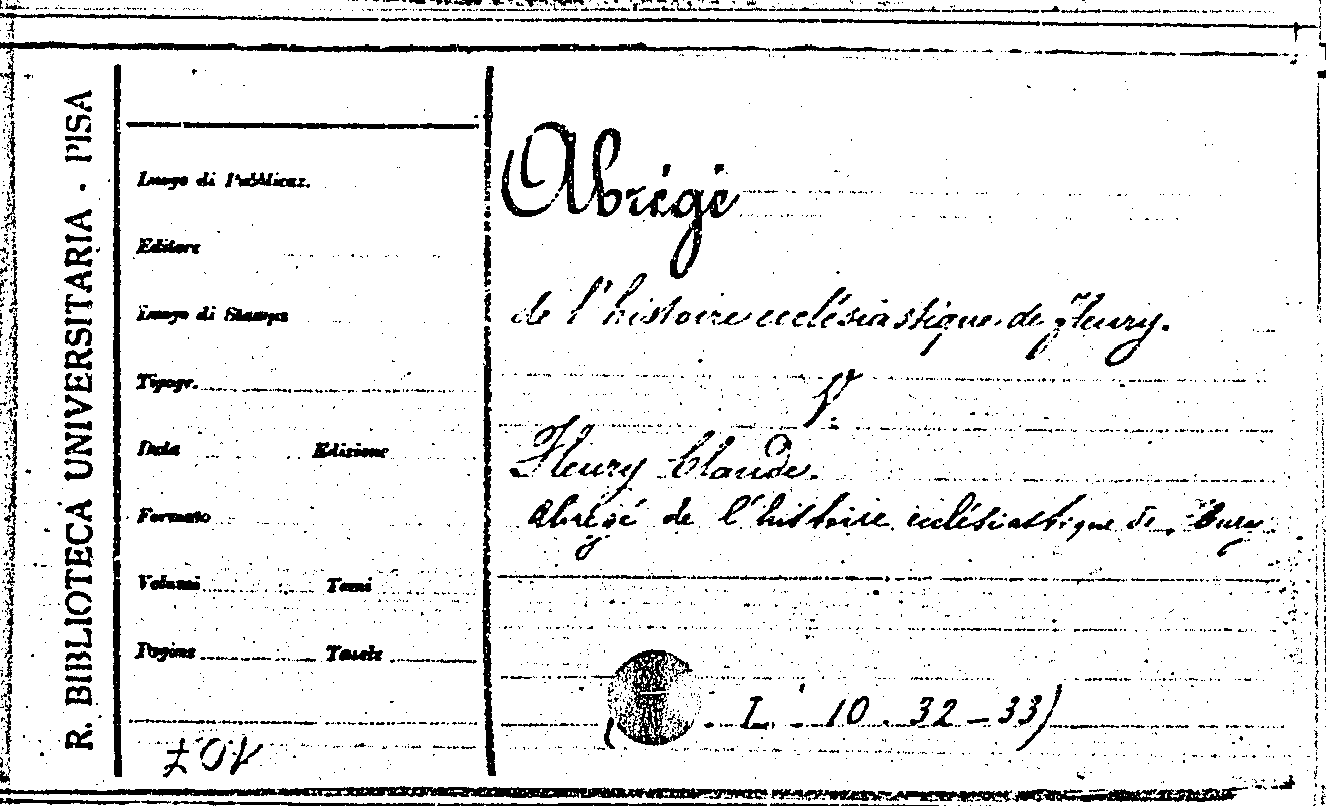 R. BIBLIOTECA UNIVERSITARIA - PISA
Luogo di Pubblicaz.
Editore
Luogo di Stampa
Tipogr.
Data Edizione
Formato
Volumi Tomi
Pagine Tavole
Abrégé
de l'histoire ecclésiastique de Fleury.
V.
Fleury Claude.
Abrégé de l'histoire ecclésiastique de Fleury
( . L . 10 . 32 - 33)